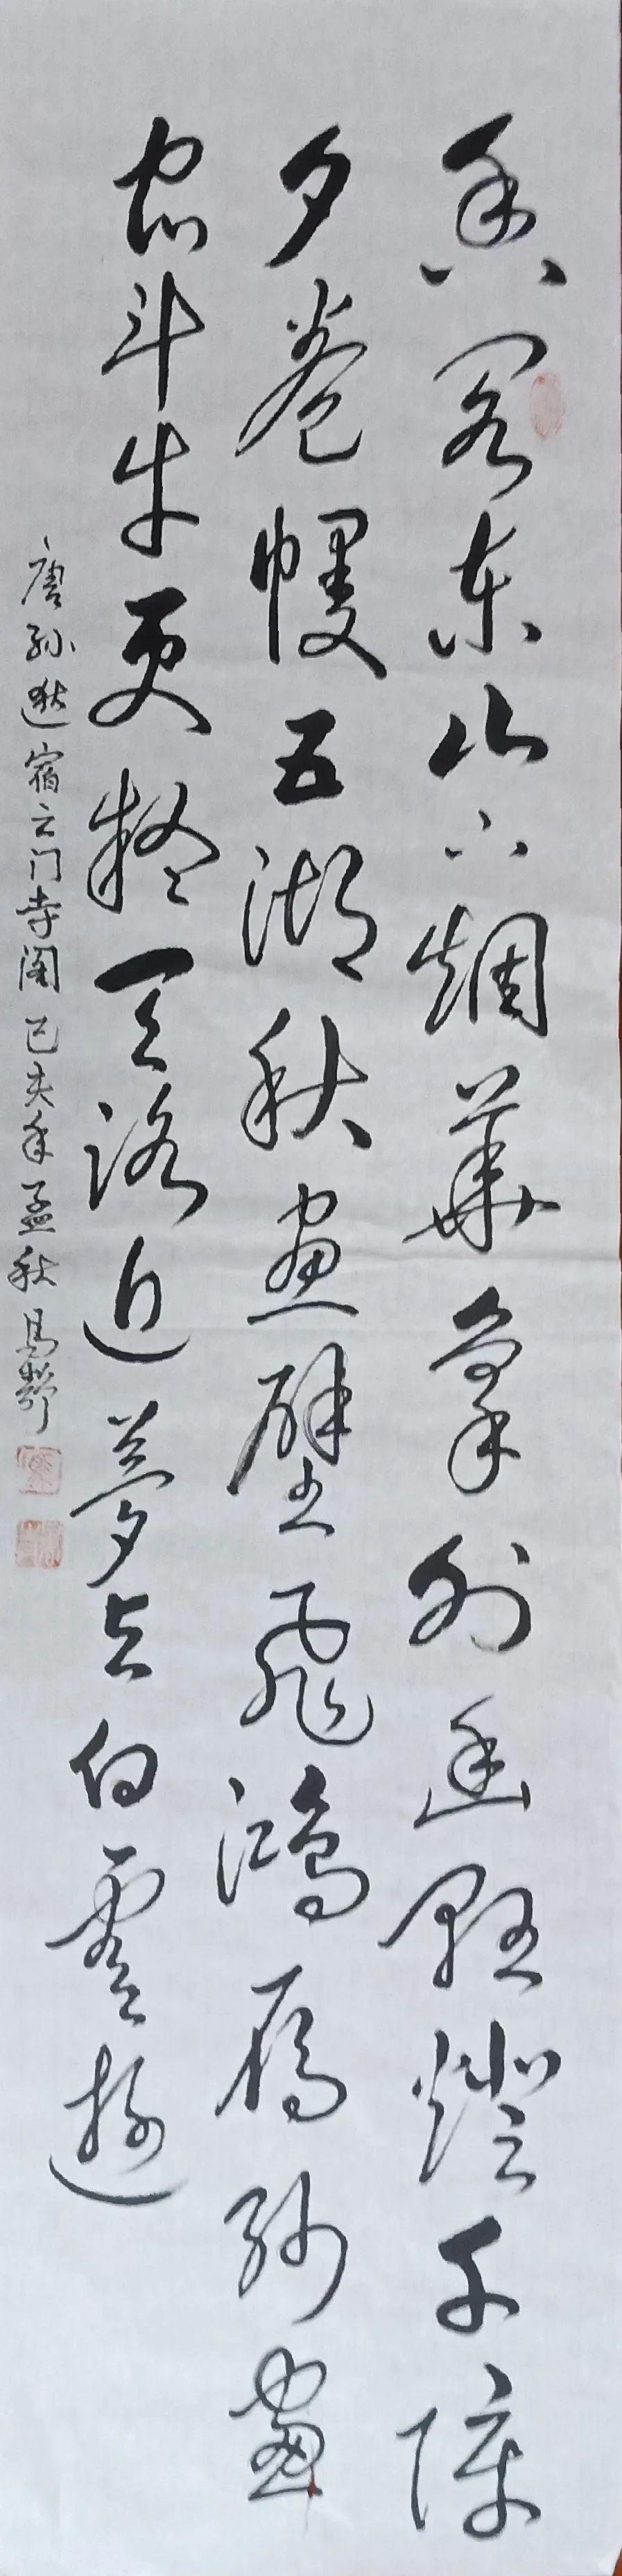 香阁东山下烟华象外幽悬燈千障
夕卷幔五湖秋画壁飛鸿雁纱窗
宿斗牛更疑天路近夢与白雲遊
唐孙逖宿云门寺阁己亥年孟秋马